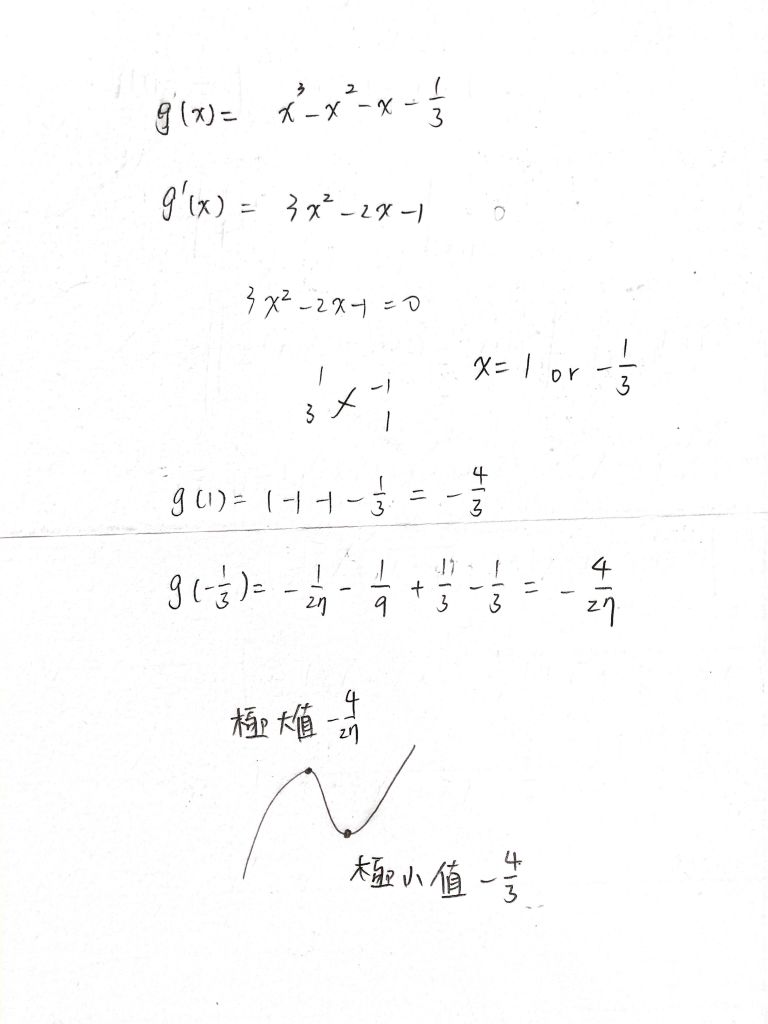 g(x) = x³ - x² - x - 1/3
g'(x) = 3x² - 2x - 1
3x² - 2x - 1 = 0
1 -1
3 1
x = 1 or -1/3
g(1) = 1 - 1 - 1 - 1/3 = -4/3
g(-1/3) = -1/27 - 1/9 + 1/3 - 1/3 = -4/27
極大值 -4/27
極小值 -4/3